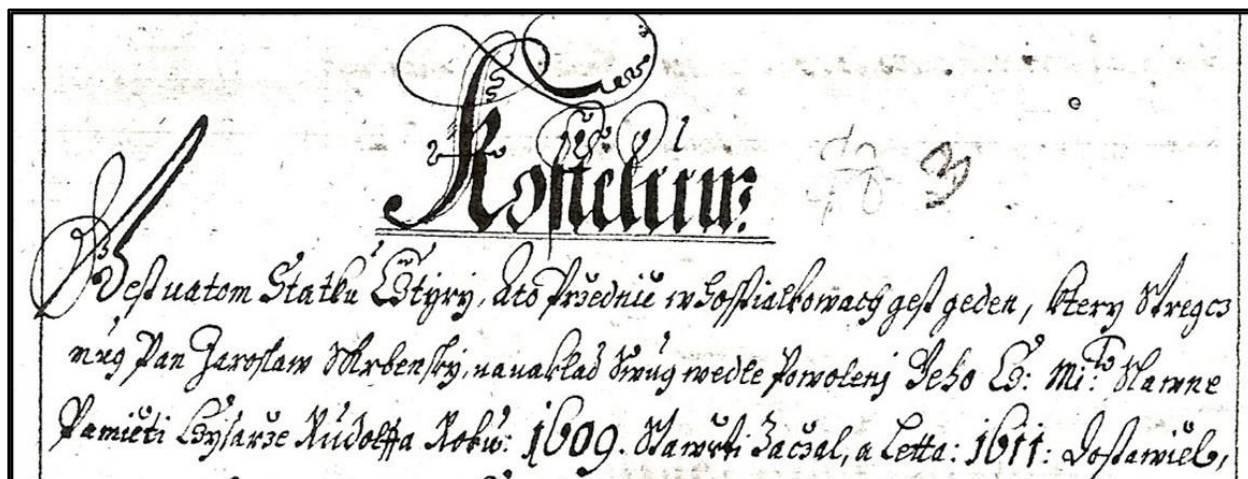 Kostelúw:
3
Gest natom Statku Cžtyry, Ato Przednie w Hosstialkowach gest geden, ktery Stregcz
múg Pan Jaroslaw Skrbenský, na naklad Swúg wedle Powolenj Geho Cý: Mi:ti Slawne
Pamieti Cysarze Rudolffa Roku: 1609. Stawieti Zaczal, a Letta: 1611: Dostawiel,